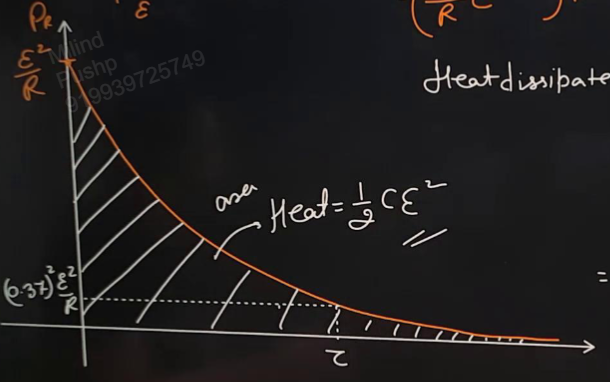 P_R
ε
ε²/R
Milind
Pushp
919939725749
Heat dissipate
area
Heat = 1/2 Cε²
(0.37)² ε²/R
=
τ